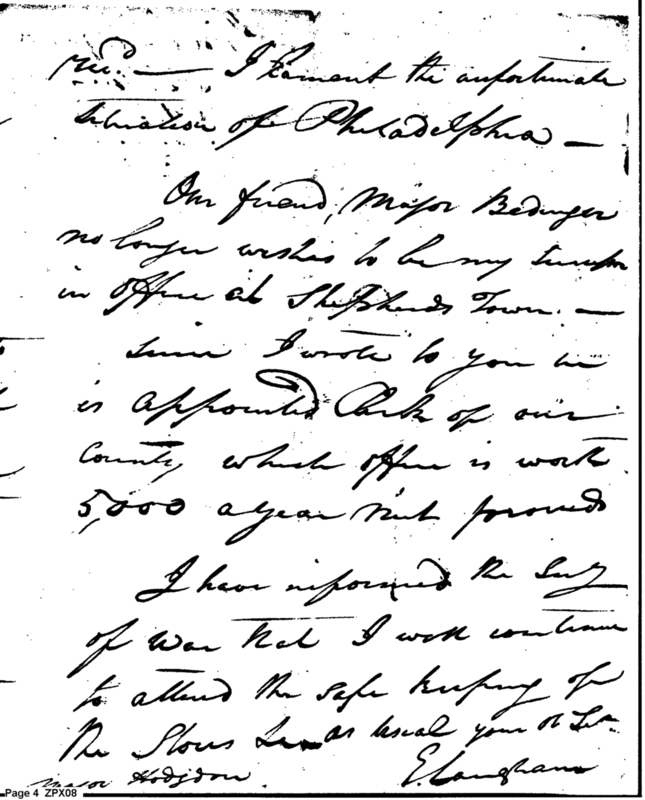 rec.d — I Lament the unfortunate
situation of Philadelphia —
Our friend, Major Bedinger
no longer wishes to be my
in office at Shepherds Town. —
since I wrote to you he
is appointed Clerk of our
County, which office is worth
5,000 a year Nett proceeds
I have informed the Secy
of War that I will continue
to attend the safe keeping of
the Stores as usual your Ob Ser
E. Langham
Major Hodgdon.
Page 4 ZPX08